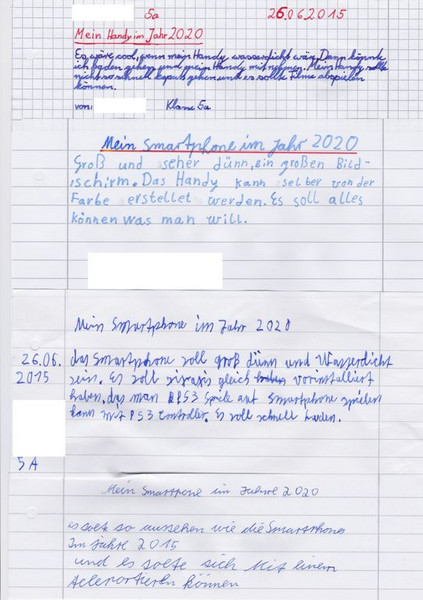 5a 26.06.2015
Mein Handy im Jahr 2020
Es wäre cool, wenn mein Handy wasserdicht wär. Dann könnte
ich baden gehen und mein Handy mitnehmen. Mein Handy sollte
nicht so schnell kaputt gehen und es sollte Filme abspielen
können.
von: Klasse 5a
Mein Smartphone im Jahr 2020
Groß und seher dünn, ein großen Bild-
ischirm. Das Handy kann selber von der
Farbe erstellet werden. Es soll alles
können was man will.
Mein Smartphone im Jahr 2020
26.06. das Smartphone soll groß dünn und Wasserdicht
2015 sein. Es soll gleich vorinstalliert
haben, das man PS3 Spiele auf Smartphone spielen
kann mit PS3 Controller. Es soll schnell laden.
5A
Mein Smartphone im Jahre 2020
es solte so aussehen wie die Smartphones
Im jahre 2015
und es solte sich Mit einem
können